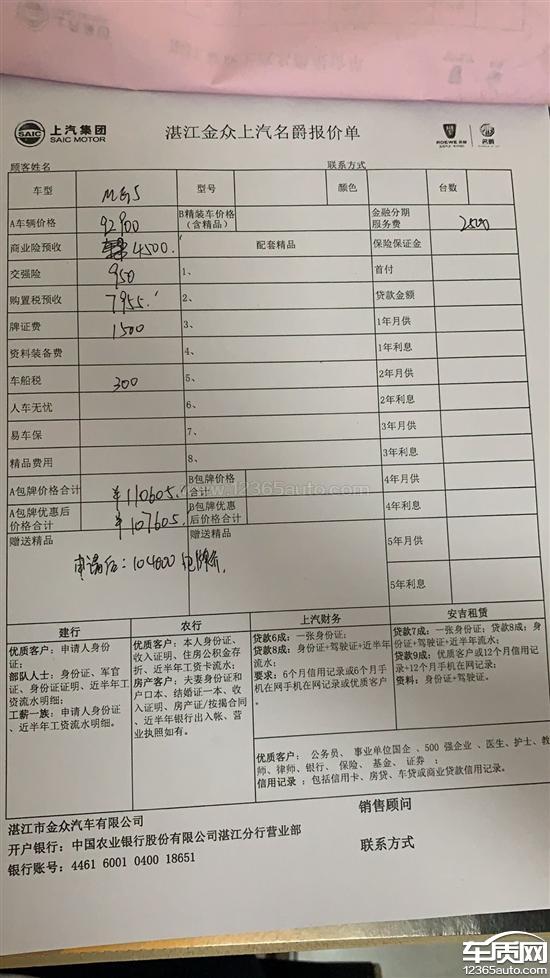 上汽集团
SAIC MOTOR
湛江金众上汽名爵报价单
ROEWE荣威 名爵
顾客姓名 联系方式
车型 MG5 型号 颜色 台数
A车辆价格 92900 B精装车价格(含精品) 金融分期服务费 2500
商业险预收 4500. 配套精品 保险保证金
交强险 950 1、 首付
购置税预收 7955. 2、 贷款金额
牌证费 1500 3、 1年月供
资料装备费 4、 1年利息
车船税 300 5、 2年月供
人车无忧 6、 2年利息
易车保 7、 3年月供
精品费用 8、 3年利息
A包牌价格合计 ¥110605. B包牌价格合计 4年月供
A包牌优惠后价格合计 ¥107605. B包牌优惠后价格合计 4年利息
赠送精品 赠送精品 5年月供
申请后:104000包牌价.
5年利息
www.12365auto.com
建行
优质客户:申请人身份
证;
部队人士:身份证、军官
证、身份证证明、近半年工
资流水明细;
工薪一族:申请人身份证
、近半年工资流水明细。
农行
优质客户:本人身份证、
收入证明、住房公积金存
折、近半年工资卡流水;
房产客户:夫妻身份证和
户口本、结婚证一本、收
入证明、房产证/按揭合同
、近半年银行出入帐、营
业执照如有。
上汽财务
贷款6成:一张身份证;
贷款8成:身份证+驾驶证+近半年
流水;
要求:6个月信用记录或6个月手
机在网手机在网记录或优质客户
。
安吉租赁
贷款7成:一张身份证;贷款8成:身
份证+驾驶证+近半年流水;
贷款9成:优质客户或12个月信用记
录+12个月手机在网记录;
资料:身份证+驾驶证。
优质客户: 公务员、 事业单位国企 、500 强企业 、医生、护士、教
师、律师、银行、 保险、 基金、 证券 ;
信用记录 :包括信用卡、房贷、车贷或商业贷款信用记录。
湛江市金众汽车有限公司 销售顾问
开户银行:中国农业银行股份有限公司湛江分行营业部 联系方式
银行账号:4461 6001 0400 18651
车质网
12365auto.com